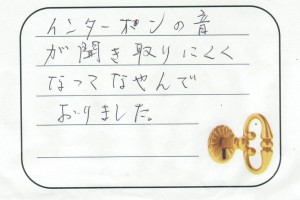 インターホンの音
が聞き取りにくく
なってなやんで
おりました。